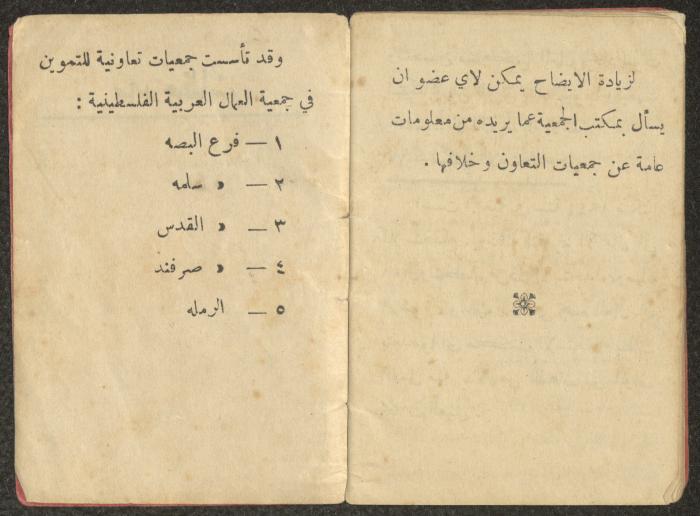 لزيادة الايضاح يمكن لاي عضو ان
يسأل بمكتب الجمعية عما يريده من معلومات
عامة عن جمعيات التعاون وخلافها .
وقد تأسست جمعيات تعاونية للتموين
في جمعية العمال العربية الفلسطينية :
١ — فرع البصه
٢ — « سلمه
٣ — « القدس
٤ — « صرفند
٥ — الرمله